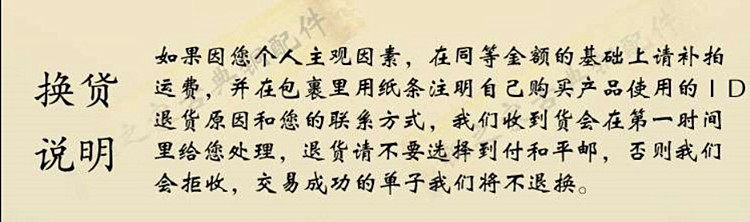 换货
说明
如果因您个人主观因素，在同等金额的基础上请补拍
运费，并在包裹里用纸条注明自己购买产品使用的ID
退货原因和您的联系方式，我们收到货会在第一时间
里给您处理，退货请不要选择到付和平邮，否则我们
会拒收，交易成功的单子我们将不退换。